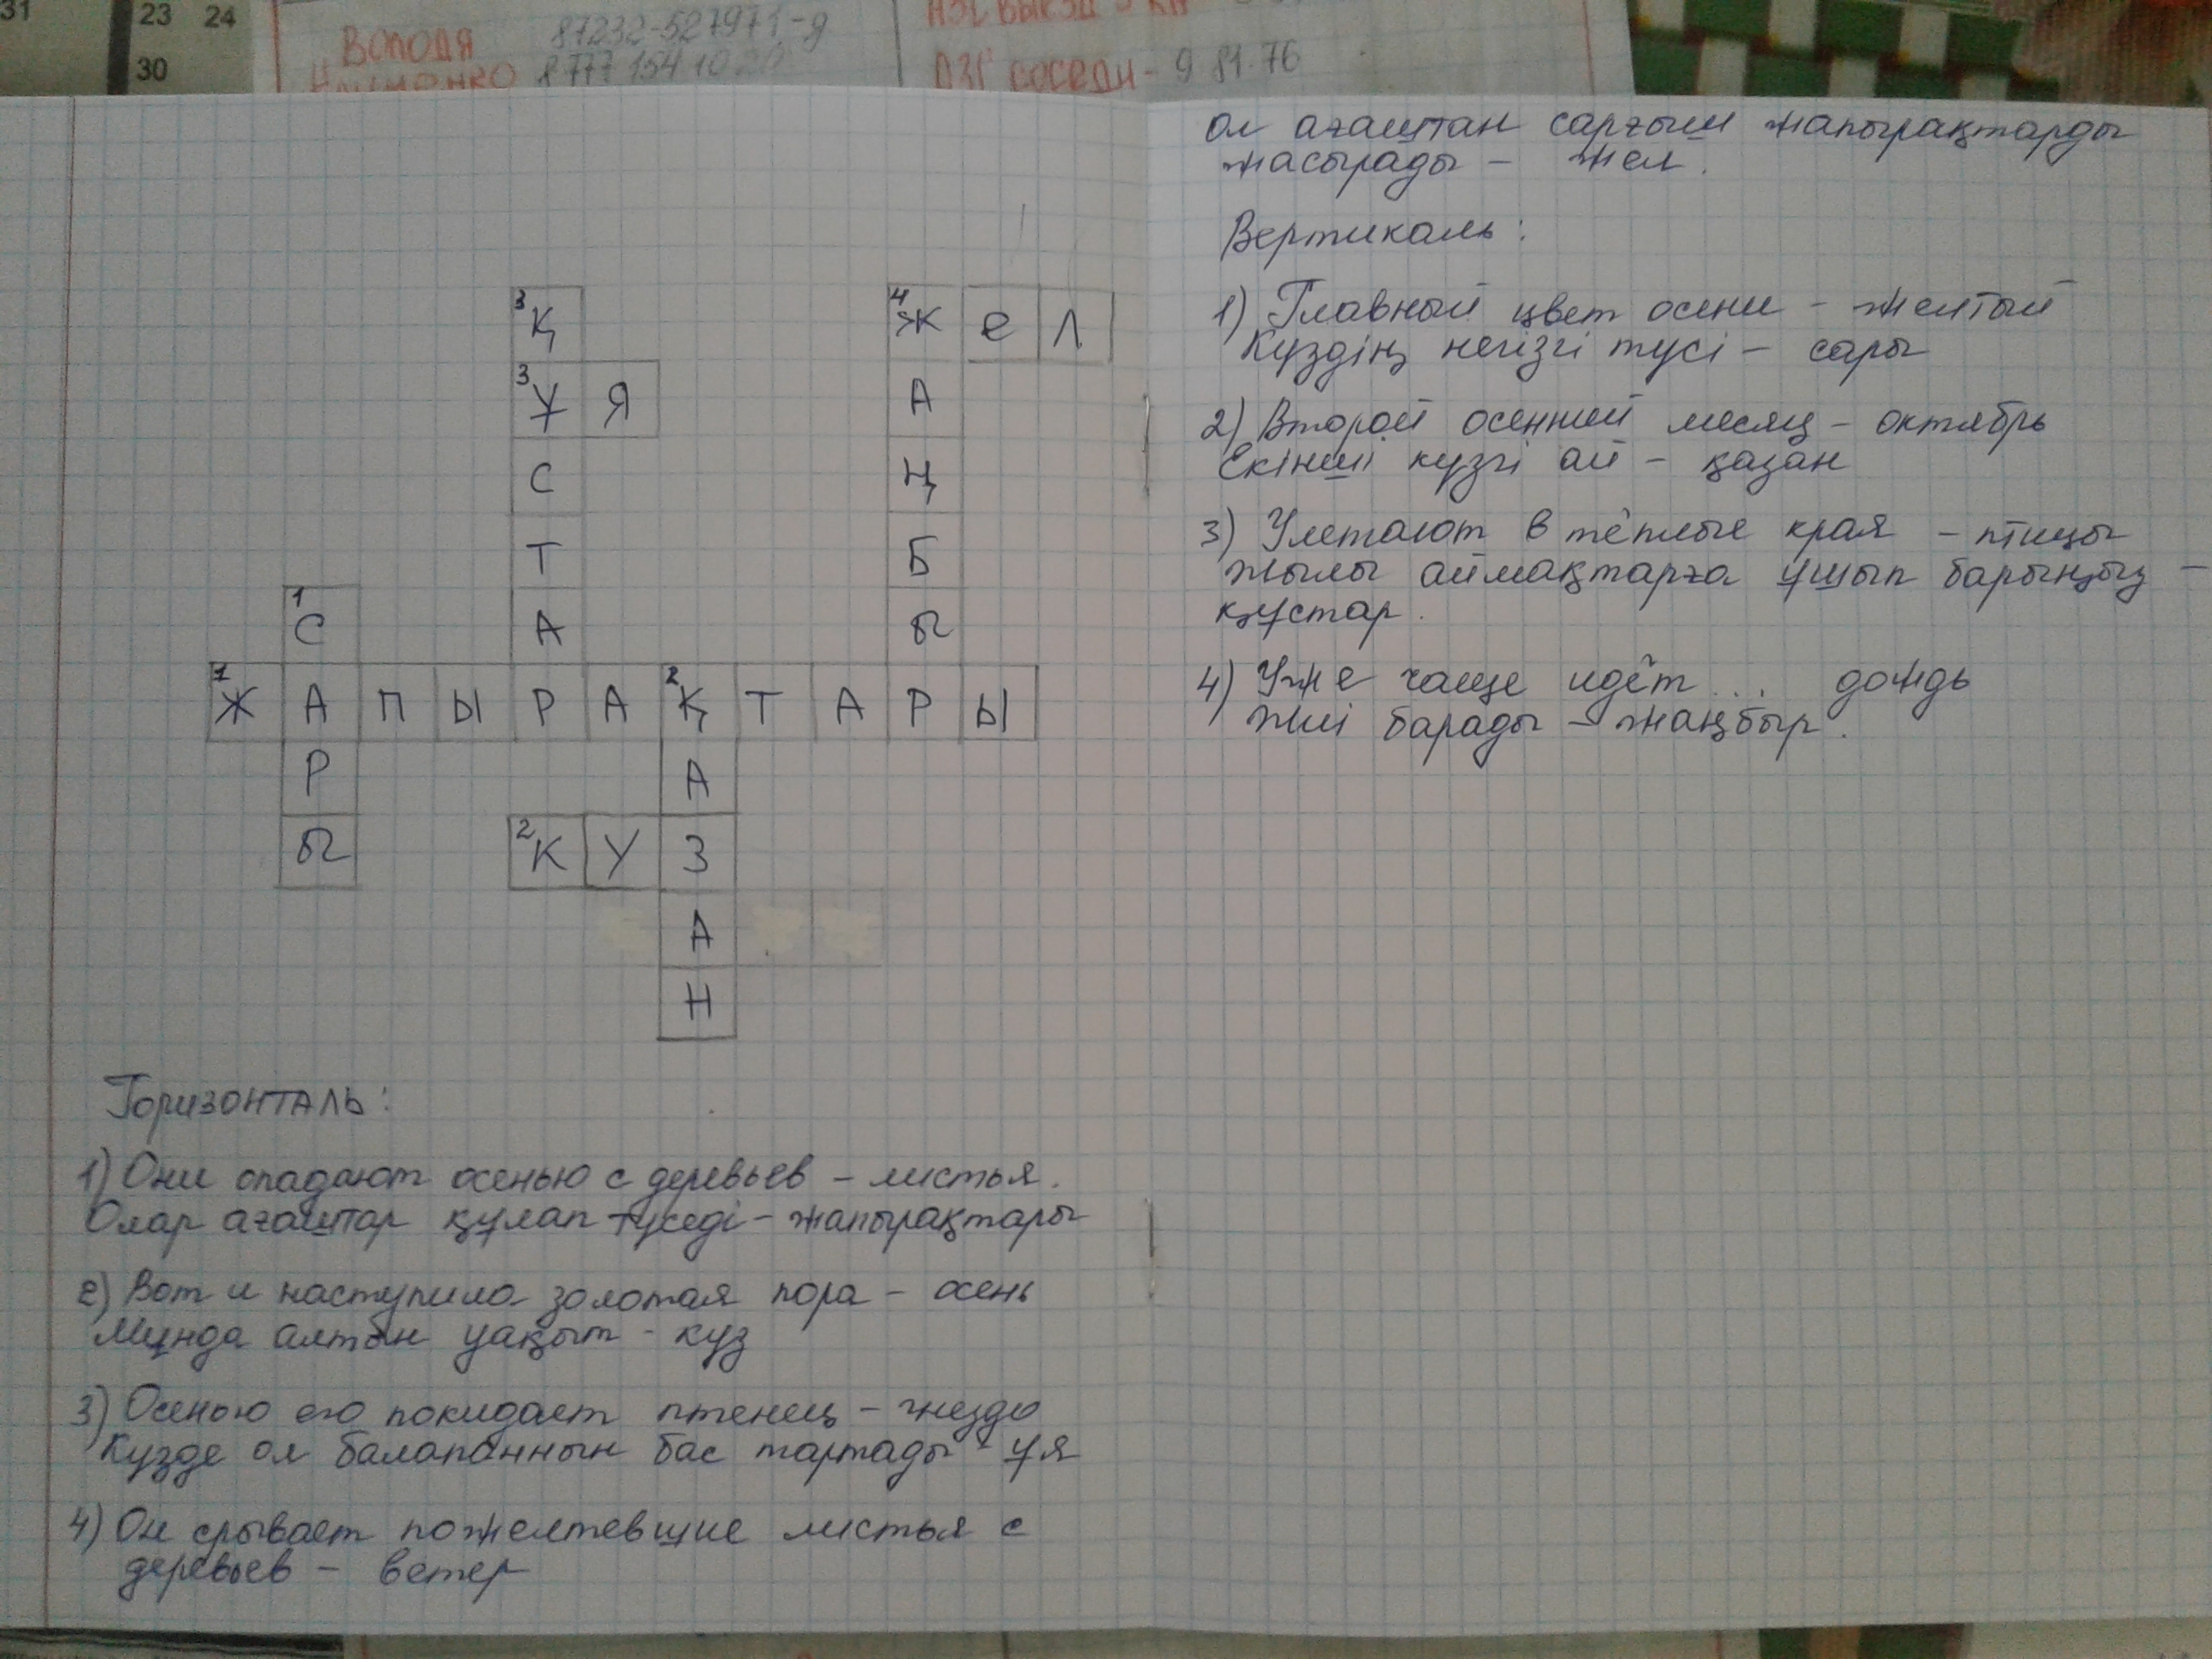 31
23 24
30
Володя 87232-527971-д
8777 154 10 20
ДЗГ соседи - 9 81.76
3Қ 4Ж е Л
3Ұ Я А
С Ң
Т Б
1С А Ы
1Ж А П Ы Р А 2Қ Т А Р Ы
Р А
Ы 2К У З
А
Н
Горизонталь:
1) Они опадают осенью с деревьев - листья.
Олар ағаштар құлап түседі - жапырақтары
2) Вот и наступила золотая пора - осень
Мұнда алтын уақыт - куз
3) Осенью его покидает птенец - гнездо
Кузде ол балапаннын бас тартады - ұя
4) Он срывает пожелтевшие листья с
деревьев - ветер
ол ағаштан сарғыш жапырақтарды
жасырады - жел.
Вертикаль:
1) Главный цвет осени - желтый
Куздің негізгі тусі - сары
2) Второй осенний месяц - октябрь
Екінші кузгі ай - қазан
3) Улетают в тёплые края - птицы
жылы аймақтарға ұшып барыңыз -
құстар.
4) Уже чаще идёт... дождь
жиі барады - жаңбыр.